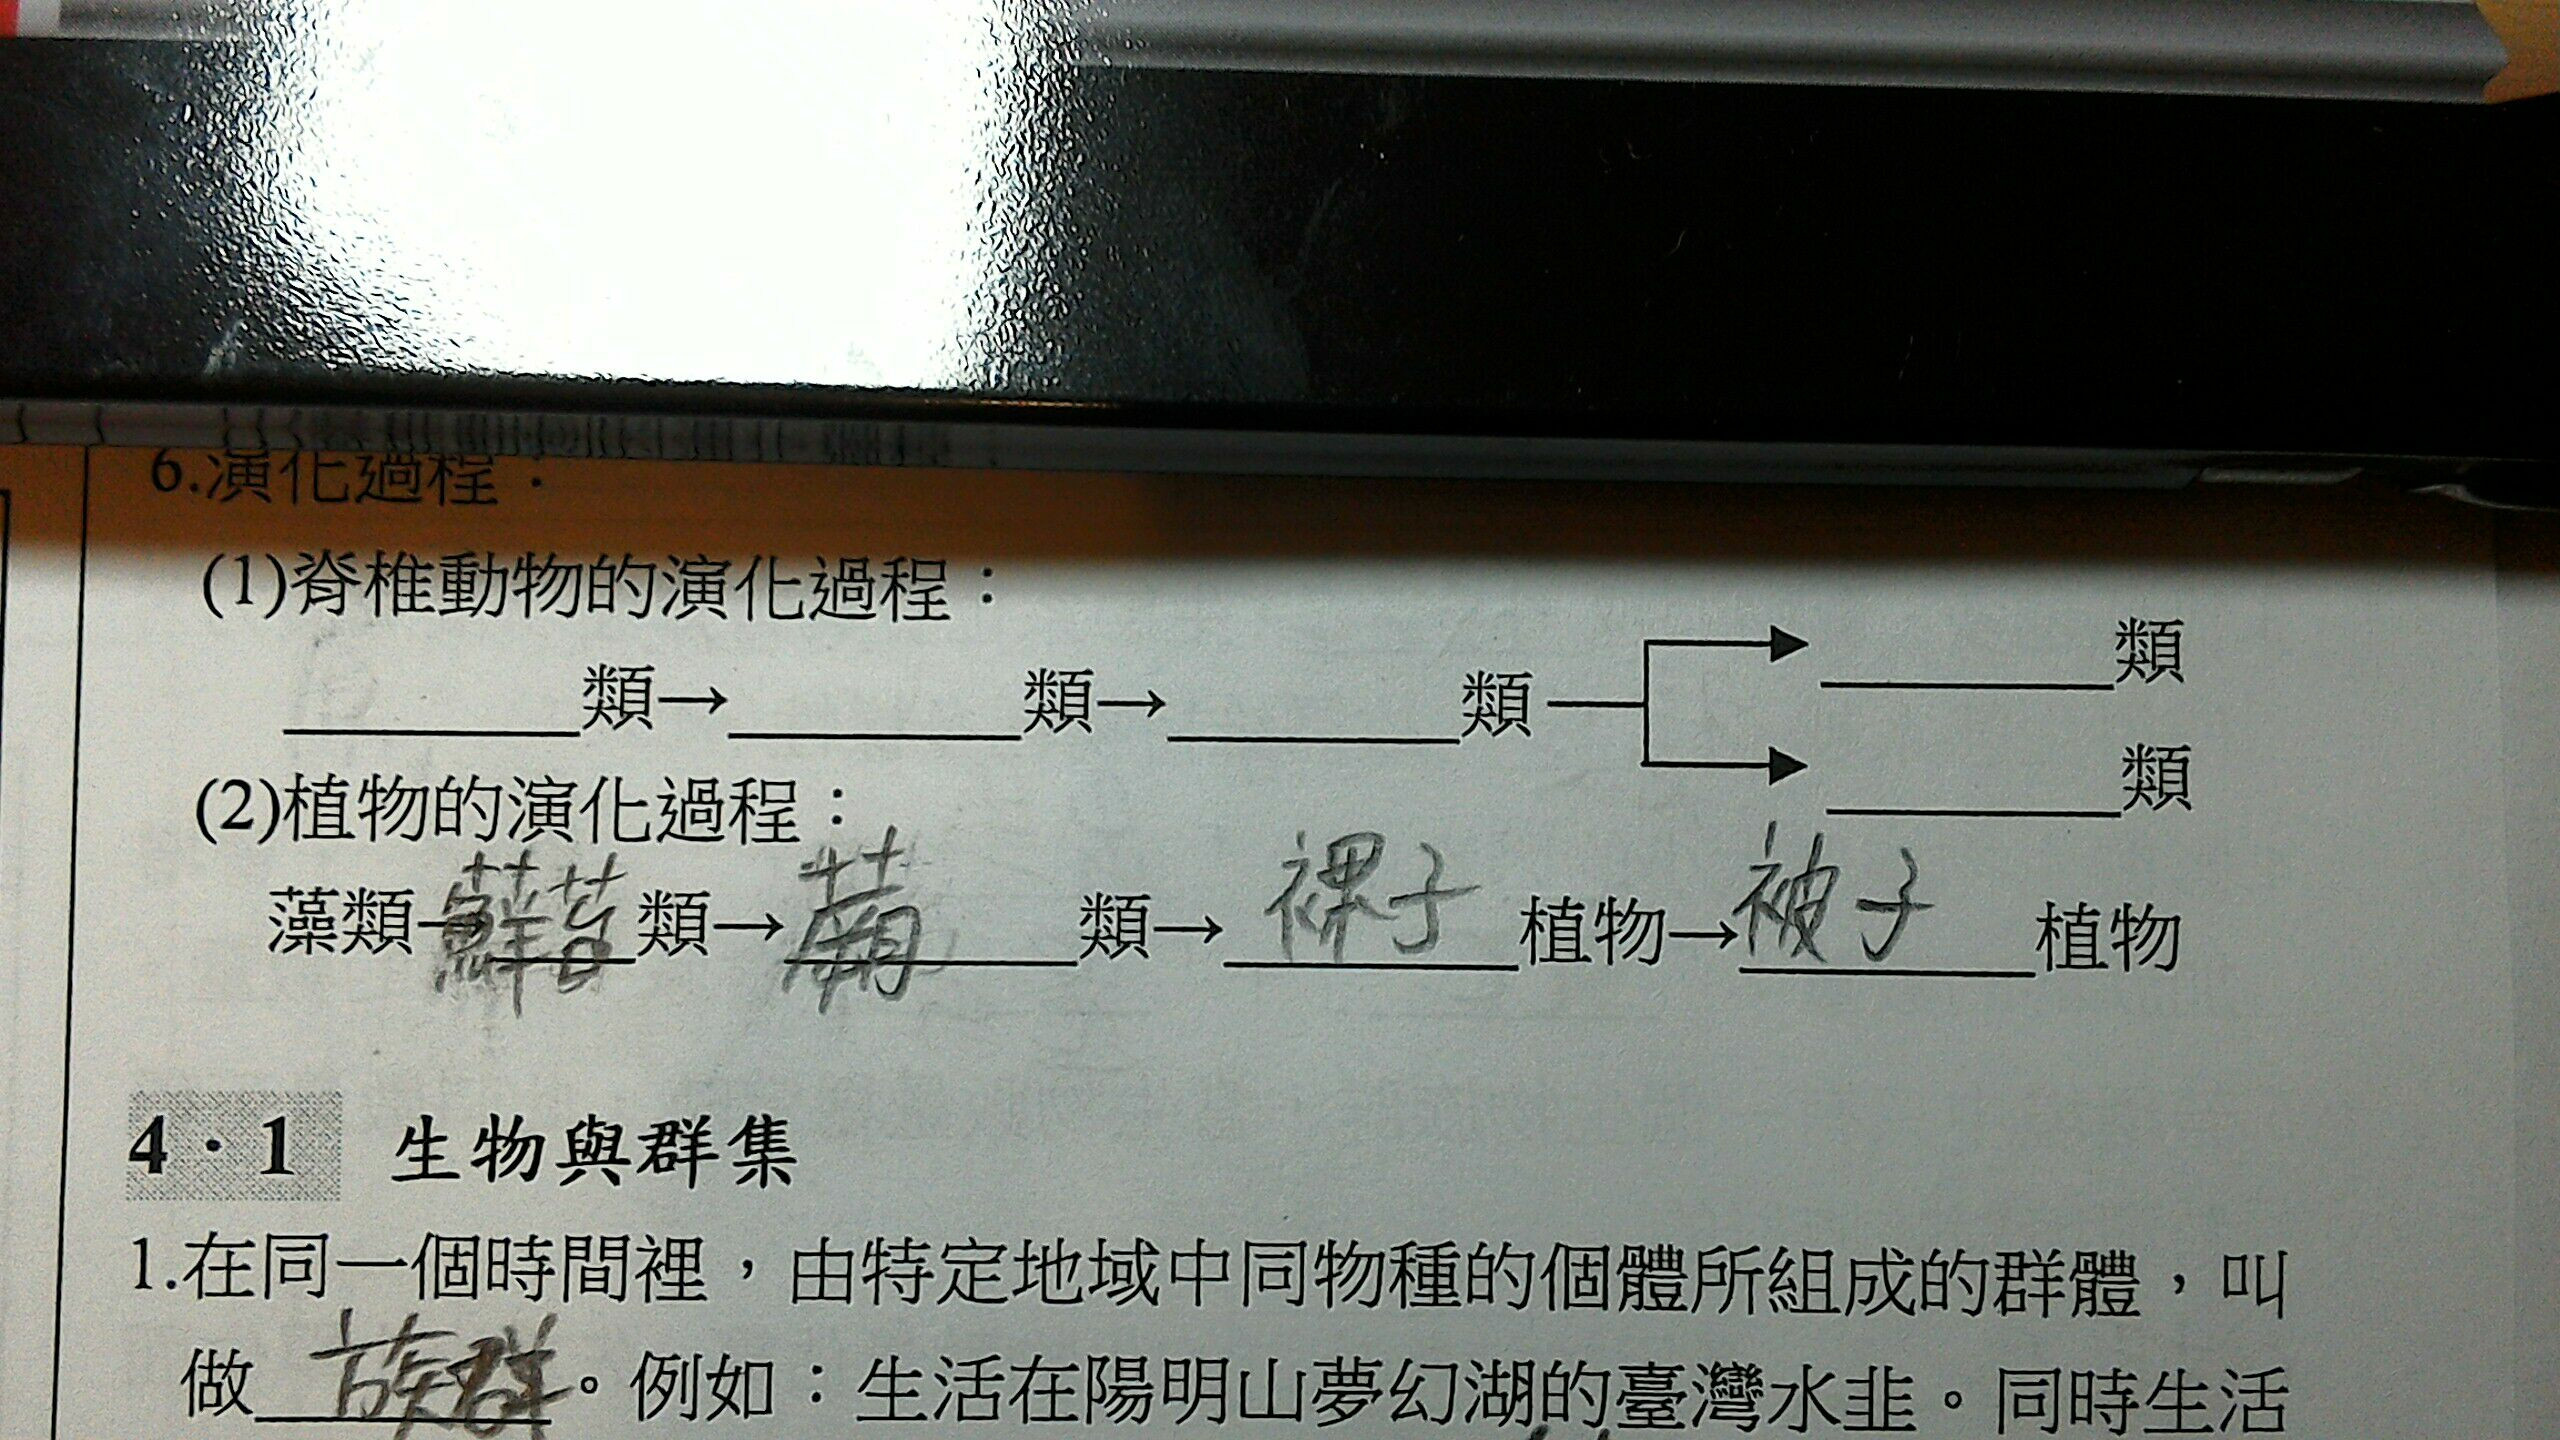 6.演化過程：
(1)脊椎動物的演化過程：
______類→______類→______類 → ______類
______類
(2)植物的演化過程：
藻類→蘚苔類→蕨類→裸子植物→被子植物
4·1 生物與群集
1.在同一個時間裡，由特定地域中同物種的個體所組成的群體，叫
做族群。例如：生活在陽明山夢幻湖的臺灣水韭。同時生活